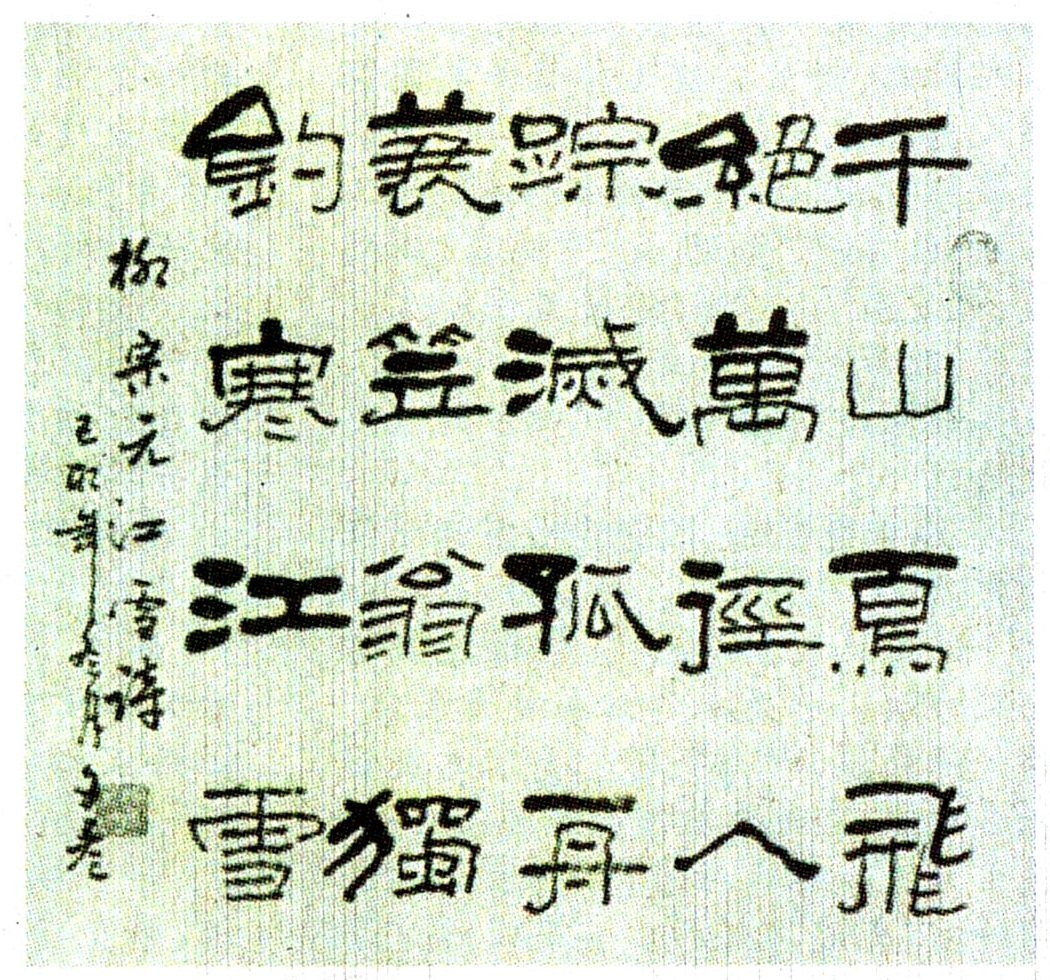 千山鳥飛
絕萬徑人
踪滅孤舟
蓑笠翁獨
釣寒江雪
柳宗元江雪詩
己卯年